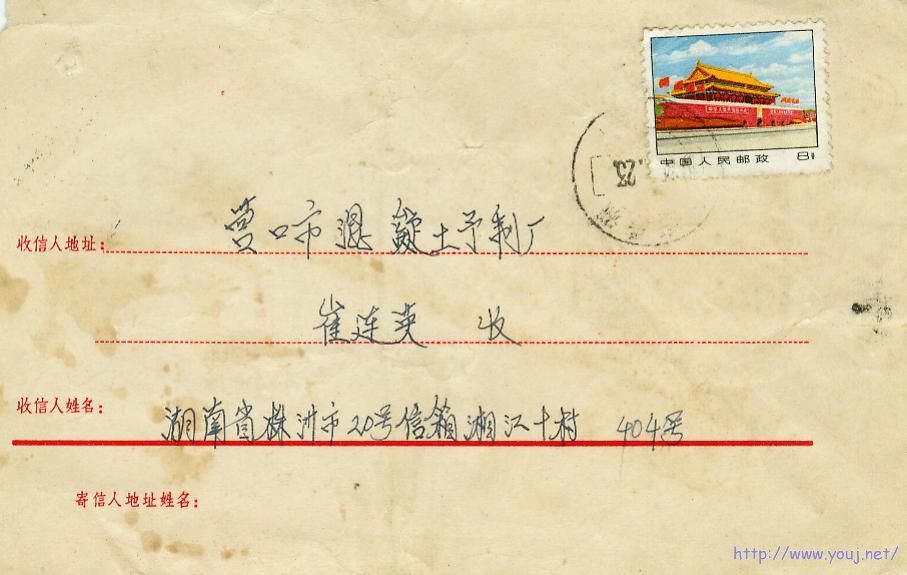 中国人民邮政 8分
23
收信人地址：营口市混凝土予制厂
崔连英 收
收信人姓名：
湖南省株洲市20号信箱湘江十村 404号
寄信人地址姓名：
http://www.youj.net/